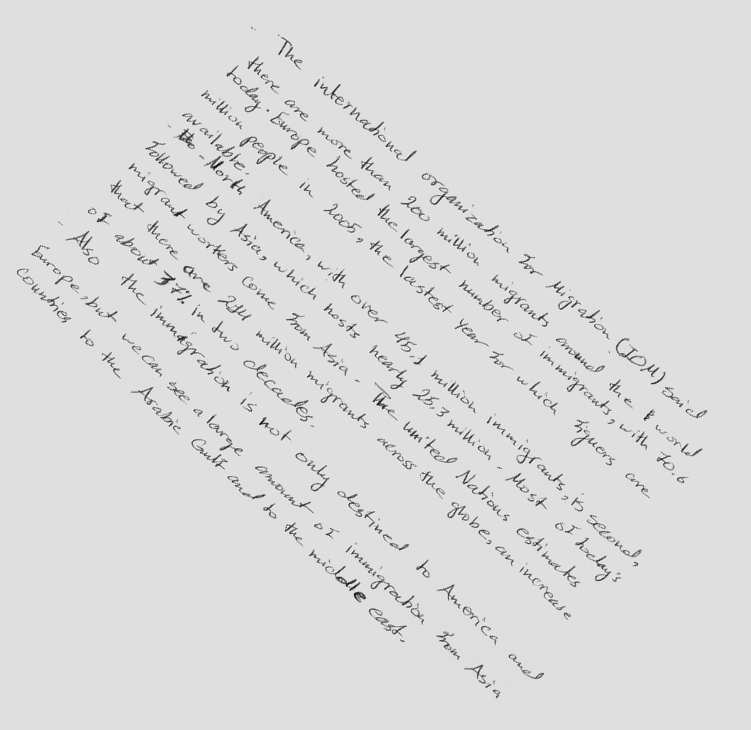 - The international organization for Migration (IOM) said
there are more than 200 million migrants around the world
today. Europe hosted the largest number of immigrants, with 70.6
million people in 2005, the lastest year for which figuors are
available.
- North America, with over 45.1 million immigrants, is second,
followed by Asia, which hosts nearly 25.3 million. Most of today's
migrant workers come from Asia. The united Nations estimates
that there are 214 million migrants across the globe, an increase
of about 37% in two decades.
- Also the immigration is not only destined to America and
Europe, but we can see a large amount of immigration from Asia
Countries to the Arabic Gulf and to the middle east.